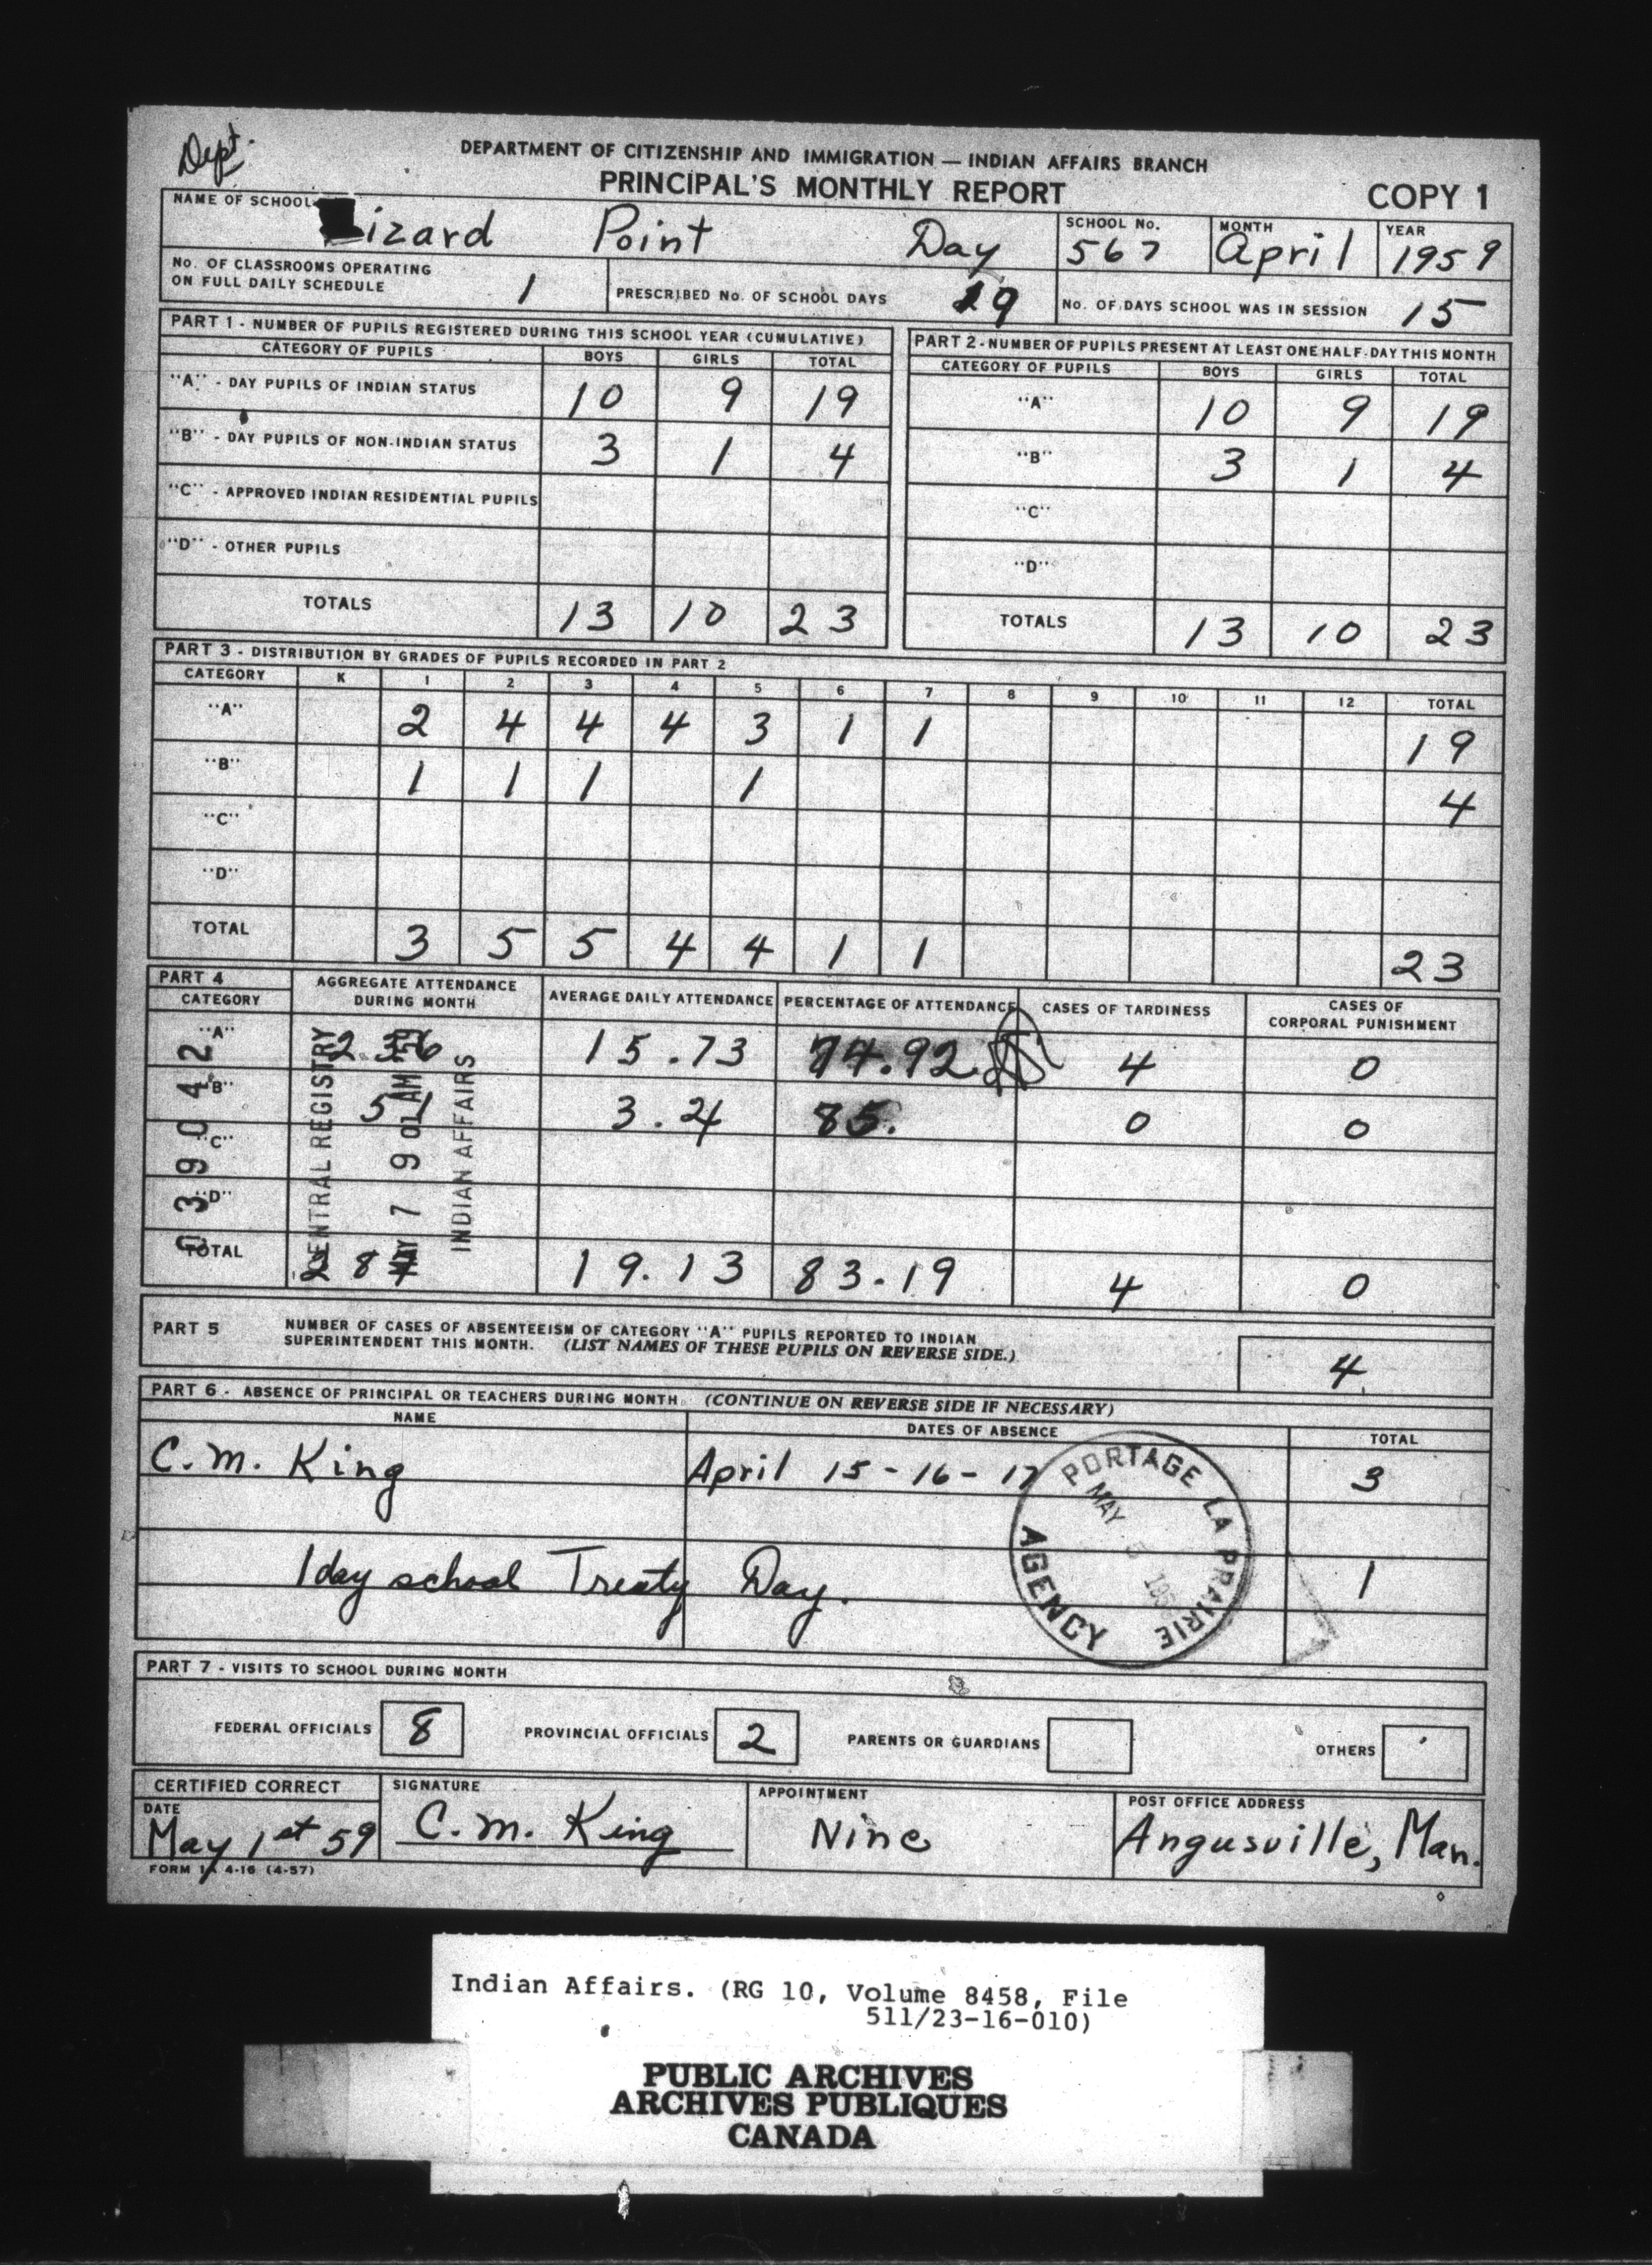 Dept.
DEPARTMENT OF CITIZENSHIP AND IMMIGRATION — INDIAN AFFAIRS BRANCH
PRINCIPAL'S MONTHLY REPORT
COPY 1
NAME OF SCHOOL Lizard Point Day SCHOOL No. 567 MONTH April YEAR 1959
No. OF CLASSROOMS OPERATING ON FULL DAILY SCHEDULE 1 PRESCRIBED No. OF SCHOOL DAYS 19 No. OF DAYS SCHOOL WAS IN SESSION 15
PART 1 - NUMBER OF PUPILS REGISTERED DURING THIS SCHOOL YEAR (CUMULATIVE)
CATEGORY OF PUPILS BOYS GIRLS TOTAL
"A" - DAY PUPILS OF INDIAN STATUS 10 9 19
"B" - DAY PUPILS OF NON-INDIAN STATUS 3 1 4
"C" - APPROVED INDIAN RESIDENTIAL PUPILS
"D" - OTHER PUPILS
TOTALS 13 10 23
PART 2 - NUMBER OF PUPILS PRESENT AT LEAST ONE HALF-DAY THIS MONTH
CATEGORY OF PUPILS BOYS GIRLS TOTAL
"A" 10 9 19
"B" 3 1 4
"C"
"D"
TOTALS 13 10 23
PART 3 - DISTRIBUTION BY GRADES OF PUPILS RECORDED IN PART 2
CATEGORY K 1 2 3 4 5 6 7 8 9 10 11 12 TOTAL
"A" 2 4 4 4 3 1 1 19
"B" 1 1 1 1 4
"C"
"D"
TOTAL 3 5 5 4 4 1 1 23
PART 4
CATEGORY AGGREGATE ATTENDANCE DURING MONTH AVERAGE DAILY ATTENDANCE PERCENTAGE OF ATTENDANCE CASES OF TARDINESS CASES OF CORPORAL PUNISHMENT
"A" 236 15.73 74.92 4 0
"B" 51 3.4 85. 0 0
"C"
"D"
TOTAL 287 19.13 83.19 4 0
039042
CENTRAL REGISTRY
MAY 7 9 01 AM
INDIAN AFFAIRS
PART 5 NUMBER OF CASES OF ABSENTEEISM OF CATEGORY "A" PUPILS REPORTED TO INDIAN
SUPERINTENDENT THIS MONTH. (LIST NAMES OF THESE PUPILS ON REVERSE SIDE.) 4
PART 6 - ABSENCE OF PRINCIPAL OR TEACHERS DURING MONTH. (CONTINUE ON REVERSE SIDE IF NECESSARY)
NAME DATES OF ABSENCE TOTAL
C. M. King April 15 - 16 - 17 3
1 day school Treaty Day. 1
PORTAGE LA PRAIRIE
MAY 5 195
AGENCY
PART 7 - VISITS TO SCHOOL DURING MONTH
FEDERAL OFFICIALS 8 PROVINCIAL OFFICIALS 2 PARENTS OR GUARDIANS OTHERS
CERTIFIED CORRECT
DATE May 1st 59
SIGNATURE C. M. King
APPOINTMENT Nine
POST OFFICE ADDRESS Angusville, Man.
FORM 1A 4-16 (4-57)
Indian Affairs. (RG 10, Volume 8458, File
511/23-16-010)
PUBLIC ARCHIVES
ARCHIVES PUBLIQUES
CANADA